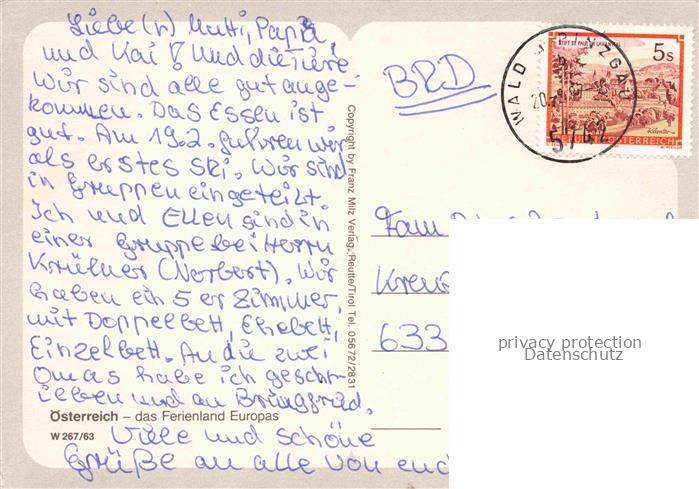 Liebe(r) Mutti, Papi
und Kai! Und die Tiere
Wir sind alle gut ange-
kommen. Das Essen ist
gut. Am 19.2. fuhren wir
als erstes Ski. Wir sind
in Gruppen eingeteilt.
Ich und Ellen sind in
einer Gruppe bei Herrn
(Norbert). Wir
haben ein 5er Zimmer,
mit Doppelbett, Ehebett,
Einzelbett. An die zwei
Omas habe ich geschr-
ieben und an
Viele und schöne
Grüße an alle von
Österreich – das Ferienland Europas
W 267/63
Copyright by Franz Milz Verlag, Reutte/Tirol Tel. 05672/2831
BRD
WALD IM PINZGAU
5742
STIFT ST. PAUL IM LAVANTTAL
5s
REPUBLIK ÖSTERREICH
Fam
633
privacy protection
Datenschutz